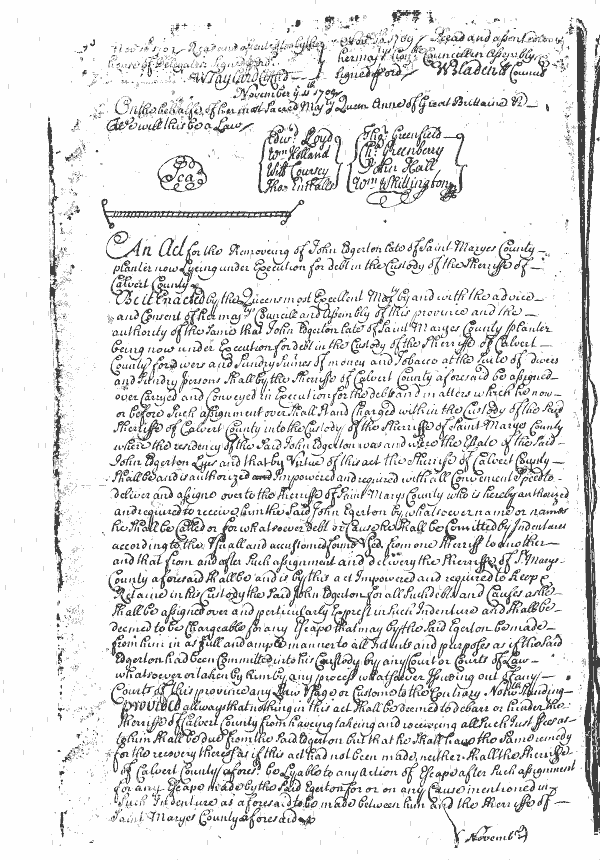 November 1709 Read and assented to by the
house of Delegates Signed ford.
W Taylard Cl: h: d:
Novr 1709 Read and assented to by
her majtys honble Councill in Assembly
Signed ford. W Bladen Cl Councll
November 11th 1709
On the behalfe of her most Sacred Majty Queen Anne of Great Brittaine &c
I will this be a Law
Edwd Lloyd
Wm Holland
Will Coursey
Thos Ennalls
Thos Greenfield
Chs Greenberry
John Hall
Wm Skillington
Sea
An Act for the Removeing of John Edgerton late of Saint Maryes County
planter now Lyeing under Execution for debt in the Custody of the Sherriffe of
Calvert County
Be it Enacted by the Queens most Excellent Majty by and with the advice
and Consent of her majtys Councill and Assembly of this province and the
authority of the same that John Edgerton late of Saint Maryes County planter
being now under Execution for debt in the Custody of the Sherriffe of Calvert
County for divers and Sundry Sumes of money and Tobacco at the Suite of divers
and Sundry persons Shall by the Sherriffe of Calvert County aforesaid be assigned
over Carryed and Conveyed in Execution for the debt and matters which he now
or before Such assignment over Shall Stand Charged with in the Custody of the Said
Sherriffe of Calvert County into the Custody of the Sherriffe of Saint Maryes County
where the residency of the Said John Edgerton was and where the Estate of the Said
John Edgerton Lyes and that by Virtue of this act the Sherriffe of Calvert County
Shall be and is authorized and Impowered and required with all Convenient Speed to
deliver and assigne over to the Sherriffe of Saint Marys County who is hereby authorized
and required to receive him the Said John Egerton by what soever name or names
he Shall be Called or for what soever debt or Cause he Shall be Comitted by Indenture
according to the Usuall and accustomed forme Used from one Sherriff to another
and that from and after Such assignment and delivery the Sherriffe of St Marys
County aforesaid Shall be and is by this act Impowered and required to keep &
Retaine in his Custody the Said John Edgerton for all Such debts and Causes as he
Shall be assigned over and perticularly Exprest in Such Indenture and Shall be
deemed to be Chargeable for any Escape that may by the Said Egerton be made
from him in as full and ample manner to all Intents and purposes as if the said
Edgerton had been Committed into his Custody by any Court or Courts of Law
whatsoever or taken by him by any process whatsoever Issuing out of any
Courts of this province any Law Usage or Custom to the Contrary Notwithstanding
Provided allways that nothing in this act Shall be deemed to debarr or hinder the
Sherriffe of Calvert County from haveing takeing and receiveing all Such Just ffees as
to him Shall be due from the Said Edgerton but that he Shall have the Same remedy
for the recovery thereof as if this act had not been made, neither Shall the Sherriffe
of Calvert County aforesd. be Lyable to any Action of Escape after Such assignment
for any Escape made by the Said Egerton for or on any Cause mentioned in
Such Indenture as aforesaid to be made between him and the Sherriffe of
Saint Maryes County aforesaid
Novemb